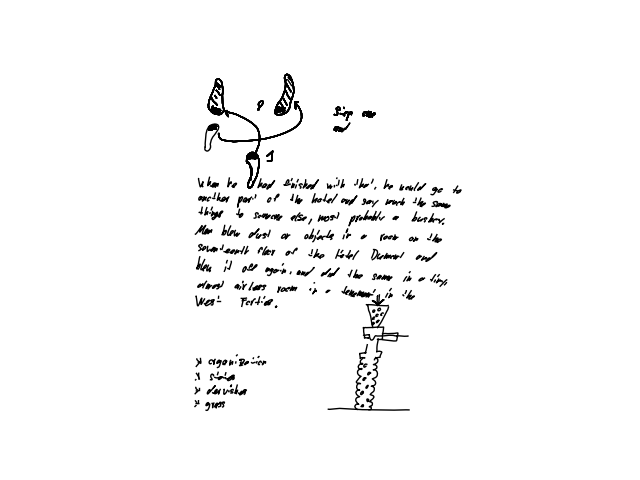 2
Step one
and
1
When he had finished with that, he would go to
another part of the hotel and say much the same
things to someone else, most probably a busboy.
Men blew dust or objects in a room on the
seventeenth floor of the Hotel Dumont and
blew it off again, and did the same in a tiny,
almost airless room in a tenement in the
West Forties.
organization
grass